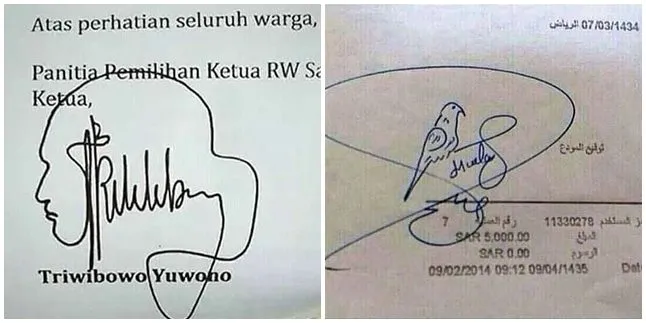 Atas perhatian seluruh warga,
Panitia Pemilihan Ketua RW Sa
Ketua,
Triwibowo Yuwono
الرياض 07/03/1434
توقيع المودع
11330278 رقم العملية 7
SAR 5,000.00 المبلغ
SAR 0.00 الرسوم
09/02/2014 09:12 09/04/1435 Dat